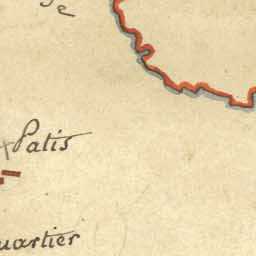 Patis
uartier